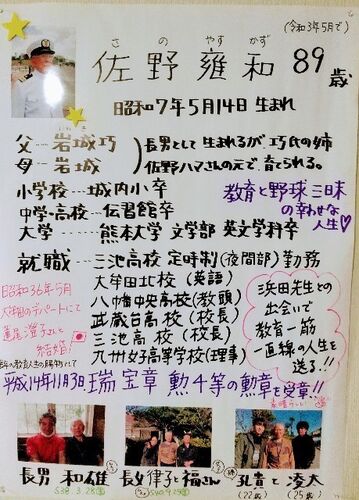 (令和3年5月で)
さの やすかず
佐野雍和 89歳
昭和7年5月14日 生まれ
父…岩城巧
母…岩城
長男として生まれるが巧氏の姉
佐野ハマさんの元で、育てられる。
小学校…城内小卒
中学・高校…伝習館卒
大学…熊本大学 文学部 英文学科卒
教育と野球三昧
の幸せな
人生♡
就職…三池高校 定時制(夜間部)勤務
大牟田北校(英語)
八幡中央高校(教頭)
武蔵台高校(校長)
三池高校(校長)
九州女子高等学校(理事)
昭和36年5月
デパートにて
澄子さんと
結婚!
浜田先生との
出会いで
教育一筋
一直線の人生を
送る!!
平成14年11月3日 瑞宝章 勲4等の勲章を受章!!
長男 和雄
S38.3.28
長女 律子と福さん
孔貴と凌太
(22才)
(25才)